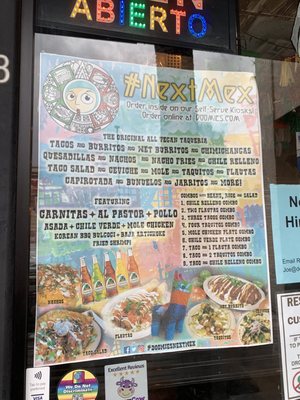 OPEN
ABIERTO
#NextMex
Order inside on our Self-Serve Kiosks!
Order online at DOOMIES.COM
THE ORIGINAL ALL VEGAN TAQUERIA
TACOS AND BURRITOS AND WET BURRITOS AND CHIMICHANGAS
QUESADILLAS AND NACHOS AND NACHO FRIES AND CHILE RELLENO
TACO SALAD AND CEVICHE AND MOLE AND TAQUITOS AND FLAUTAS
CAPIROTADA AND BUNUELOS AND JARRITOS AND MORE!
FEATURING
CARNITAS + AL PASTOR + POLLO
ASADA + CHILE VERDE + MOLE CHICKEN
KOREAN BBQ BULGOGI + BAJA KETICHOKE
FRIED SHRIMP!
COMBOS = BEANS, RICE AND SALAD
1. CHILE RELLENO COMBO
2. TWO FLAUTAS COMBO
3. THREE TACOS COMBO
4. FOUR TAQUITOS COMBO
5. MOLE CHICKEN PLATE COMBO
6. CHILE VERDE PLATE COMBO
7. TACO AND 1 FLAUTA COMBO
8. TACO AND 2 TAQUITOS COMBO
9. TACO AND CHILE RELLENO COMBO
NACHOS
TACO SALAD
FLAUTAS
WET BURRITO
TAQUITOS
@DOOMIESNEXTMEX
Now
Hiring
Email R
Joe@d
RE
CUSTO
Pay
VISA
We Do Not
Discriminate
Excellent Reviews